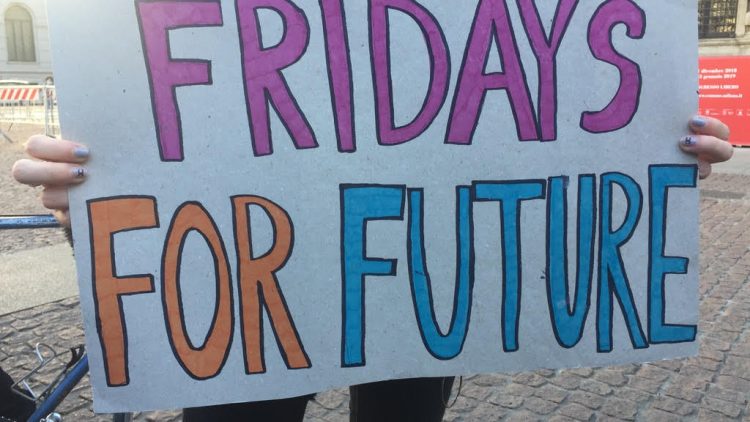 FRIDAYS
FOR FUTURE
dicembre 2018
gennaio 2019
LIBERO